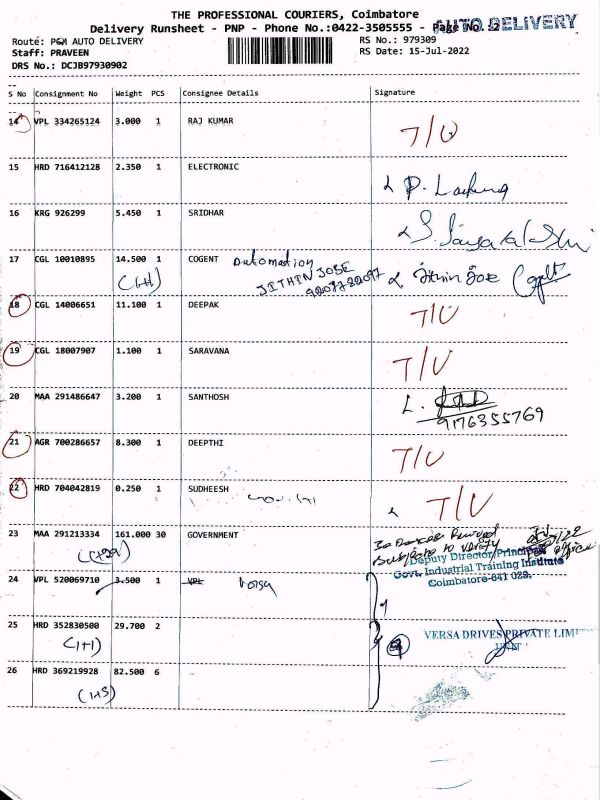 THE PROFESSIONAL COURIERS, Coimbatore
Delivery Runsheet - PNP - Phone No.:0422-3505555 - Page No. 2
AUTO DELIVERY
Route: P&M AUTO DELIVERY RS No.: 979309
Staff: PRAVEEN RS Date: 15-Jul-2022
DRS No.: DCJB97930902
S No Consignment No Weight PCS Consignee Details Signature
14 VPL 334265124 3.000 1 RAJ KUMAR T/U
15 HRD 716412128 2.350 1 ELECTRONIC
16 KRG 926299 5.450 1 SRIDHAR
17 CGL 10010895 14.500 1 COGENT Automation
(1+1) JITHIN JOSE Jithin Jose
18 CGL 14006651 11.100 1 DEEPAK T/U
19 CGL 18007907 1.100 1 SARAVANA T/U
20 MAA 291486647 3.200 1 SANTHOSH
9176355769
21 AGR 700286657 8.300 1 DEEPTHI T/U
22 HRD 704042819 0.250 1 SUDHEESH T/U
23 MAA 291213334 161.000 30 GOVERNMENT
(1+29) to verify
Deputy Director/Principal
Govt. Industrial Training Institute
Coimbatore-641 029.
24 VPL 520069710 3.500 1 VPL
25 HRD 352830500 29.700 2 VERSA DRIVES PRIVATE LIMI
(1+1) UNIT
26 HRD 369219928 82.500 6
(1+5)